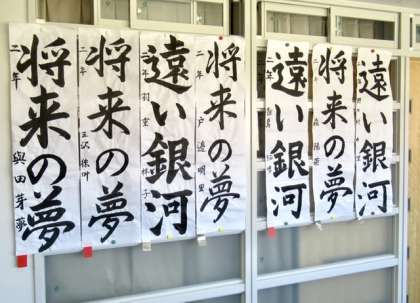 将来の夢
二年 與田芽夢
将来の夢
二年
遠い銀河
二年
将来の夢
二年 戸邉明里
遠い銀河
二年
将来の夢
二年
遠い銀河
二年